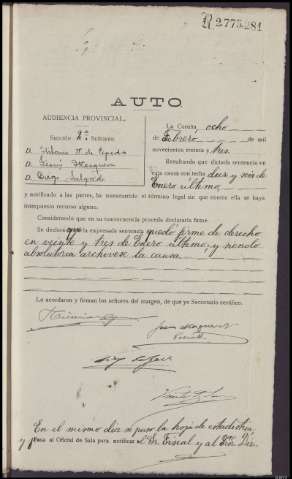 R 2.775.281
AUTO
AUDIENCIA PROVINCIAL.
Sección 2ª Señores
D.
D.
D. Diego Salgado
La Coruña, ocho
de Febrero de mil
novecientos treinta y tres
Resultando que dictada sentencia en
esta causa con fecha diez y seis de
Enero último
y notificado a las partes, ha transcurrido el término legal sin que contra ella se haya
interpuesto recurso alguno.
Considerando que en su consecuencia procede declararla firme.
Se declara que la expresada sentencia quedó firme de derecho
en veinte y tres de Enero último, y siendo
absolutoria archívese la causa
La acordaron y firman los señores del margen, de que yo Secretario certifico.
En el mismo día se puso la hoja de estadística,
y pasa al Oficial de Sala para notificar al Sr. Fiscal y al